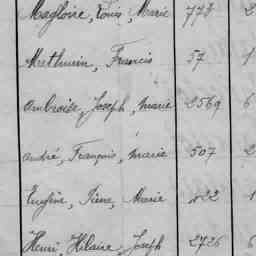 Magloire, Louis, Marie 773 2
Mathurin, Francis 57 1
Ambroise, Joseph, Marie 2569 6
André, François, Marie 507 2
Eugène, Pierre, Marie 422 1
Henri, Hilaire, Joseph 2726 6